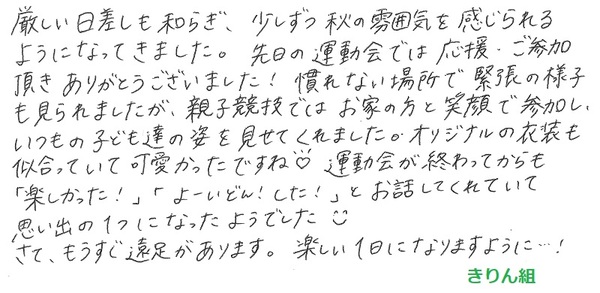 厳しい日差しも和らぎ、少しずつ秋の雰囲気を感じられる
ようになってきました。先日の運動会では応援・ご参加
頂きありがとうございました!慣れない場所で緊張の様子
も見られましたが、親子競技ではお家の方と笑顔で参加し、
いつもの子ども達の姿を見せてくれました。オリジナルの衣装も
似合っていて可愛かったですね♡運動会が終わってからも
「楽しかった!」「よーいどん!した!」とお話してくれていて
思い出の1つになったようでした☺
さて、もうすぐ遠足があります。楽しい1日になりますように…!
きりん組